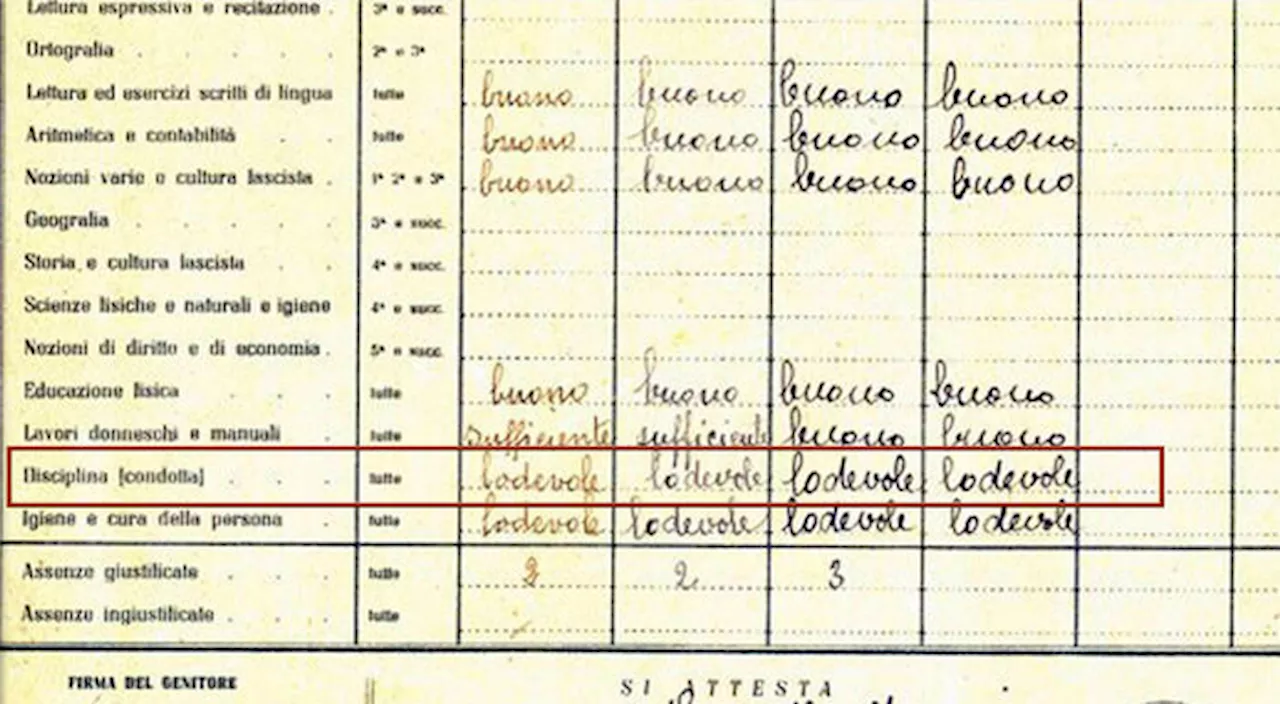 Lettura espressiva e recitazione . 3ª e succ.
Ortografia . . . . . 2ª e 3ª
Lettura ed esercizi scritti di lingua tutte buono buono buono buono
Aritmetica e contabilità . . tutte buono buono buono buono
Nozioni varie e cultura fascista . 1ª 2ª e 3ª buono buono buono buono
Geografia . . . . . 3ª e succ.
Storia e cultura fascista . . 4ª e succ.
Scienze fisiche e naturali e igiene 4ª e succ.
Nozioni di diritto e di economia . 5ª e succ.
Educazione fisica . . . tutte buono buono buono buono
Lavori donneschi e manuali . tutte sufficiente sufficiente buono buono
Disciplina [condotta] . . . tutte lodevole lodevole lodevole lodevole
Igiene e cura della persona . tutte lodevole lodevole lodevole lodevole
Assenze giustificate . . . tutte 2 2 3
Assenze ingiustificate . . tutte
FIRMA DEL GENITORE SI ATTESTA